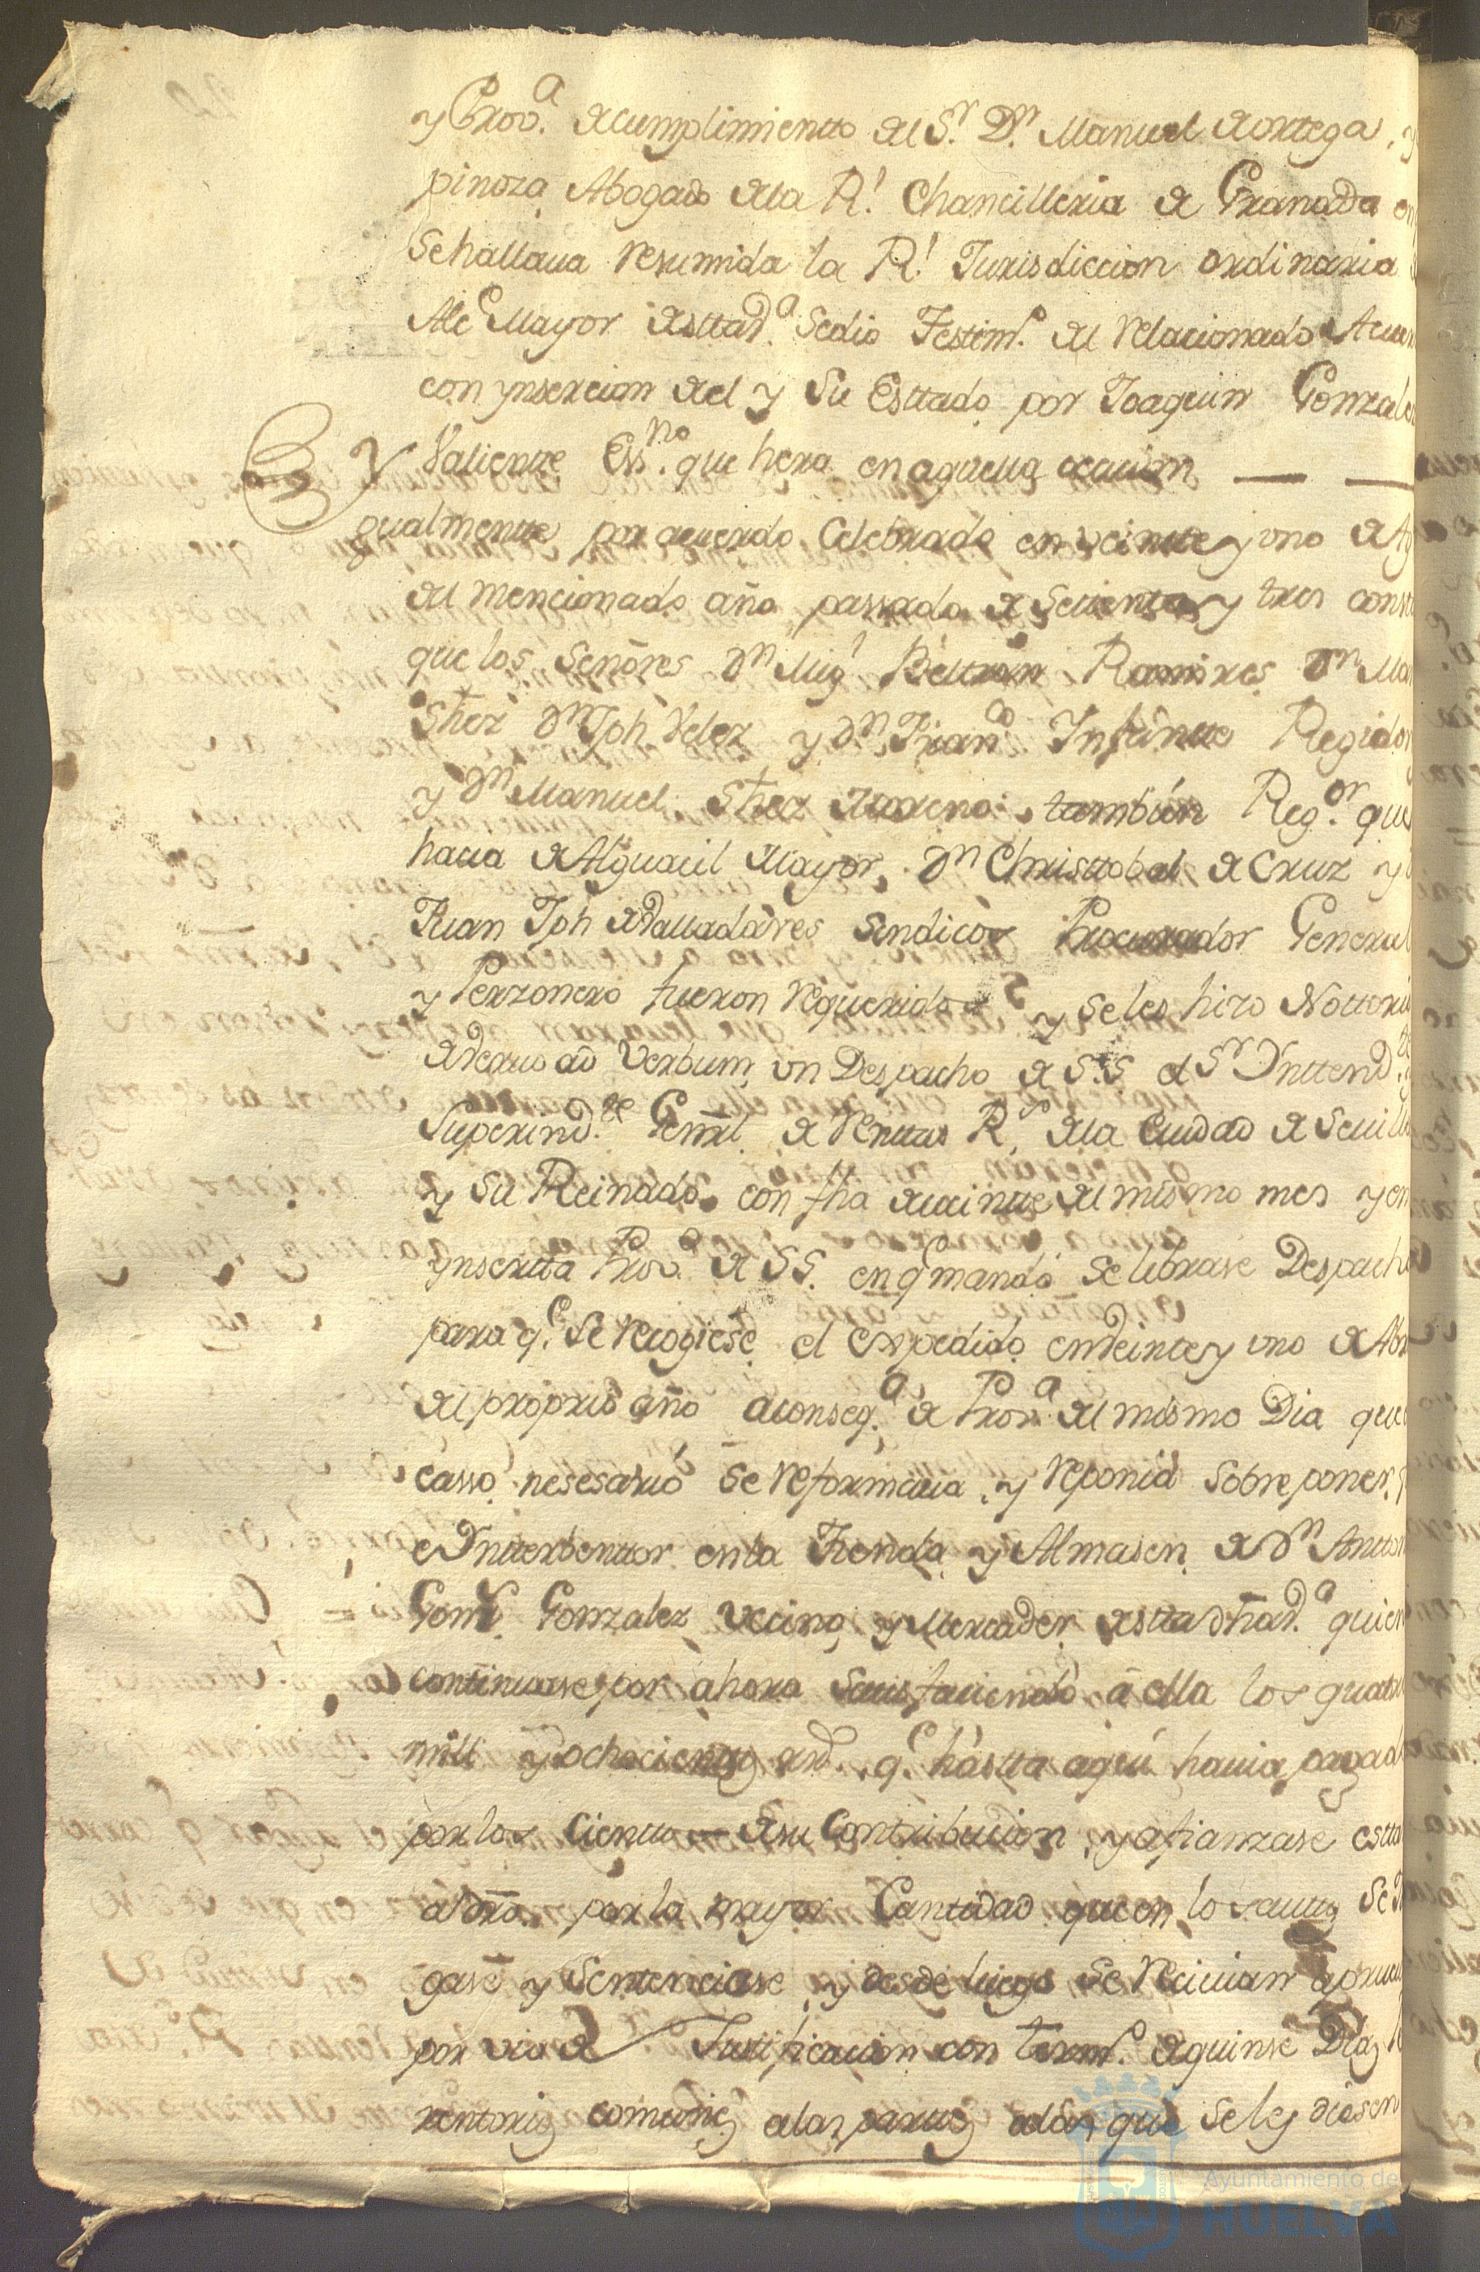 y Prov.a de cumplimiento del S.r D.n Manuel de ortega, y
pinoza Abogado de la R.l Chancilleria de Granada en
se hallaua resumida la R.l Jurisdiccion ordinaria
Alce Mayor de estta d.a se dio Testim.o del relacionado Acuer
con ynsercion de el y su Esttado por Joaquin Gonzales
Valiente Ess.no que hera en aquella ocacion
Y gualmente por acuerdo Celebrado en veintte y uno de Ag
del mencionado año passado de settenta y tres const
que los Señores Dn Migl Beltran Ramires Dn Man
Shez Dn Jph Velez y Dn Franco Infantte Regidor
y Dn Manuel Shez Moreno tambien Reg.or que
hacia de Alguacil Mayor, Dn Christtobal de Cruz y
Juan Jph de Valladares sindicos Procurador General
y Perzonero fueron requeridos y seles hizo Nottori
de veruo ad verbum un Despacho de S.S el Sr Ynttend.te
Superind.te Genrl de renttas R.s de la Ciudad de Seuill
y su Reinado con fha de ueintte del mismo mes y en
ynsertta Prov.a de S S. en q mando se librase Despacho
para q.e se recogiese el expedido en Veinte y uno de Abr
del proprio año a conseq.a de Prov.a del mismo Dia que
casso nesesario se reformaua, y reponia sobre poner
e Yntterbenttor en la Tienda y Almasen de Dn Antton
Gonzalez vecino y Mercader de estta dha d.a quien
continuase por ahora satisfaciendo a ella los quatro
mill y ochocientos rrd. q.e hastta aqui hauia pagad
por los Cienttos de su Contribucion y afianzase estta
por la mayor Canttidad que en los auttos se
gase y sentenciase y desde luego se reciuian a prueu
por via de Justificacion con term.o de quinse Dias
rentorios comunes a las parttes a las que seles diesen
Ayuntamiento de
HUELVA